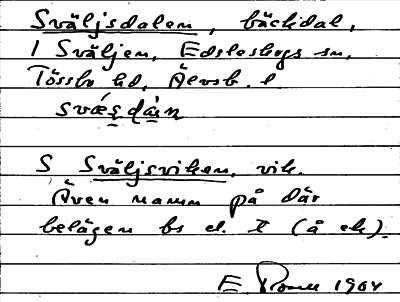 Sväljsdalen, bäckdal,
I Sväljen, Edsleskogs sn,
Tössbo hd, Älvsb. l.
svæ̀s̠dáṣn
S Sväljsviken, vik.
Även namn på där
belägen bs el. t (å ek).
E 1964